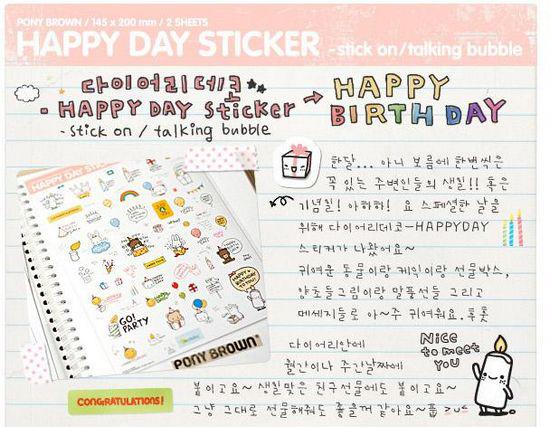 PONY BROWN / 145 x 200 mm / 2 SHEETS
HAPPY DAY STICKER - stick on / talking bubble
다이어리데코
- HAPPY DAY Sticker → HAPPY BIRTHDAY
- Stick on / talking bubble
한달... 아니 보름에 한번씩은
꼭 있는 주변인들의 생일!! 혹은
기념일! 아하하! 요 스페셜한 날을
위해 다이어리데코-HAPPYDAY
스티커가 나왔어요~
귀여운 동물이랑 케익이랑 선물박스,
양초들그림이랑 말풍선들 그리고
메세지들로 아~주 귀여워요. 후훗
HAPPY DAY STICKER
GO!
PARTY
HAPPY
BIRTHDAY
TO YOU
PONY BROWN
다이어리안에
월간이나 주간날짜에
붙이고요~ 생일맞은 친구선물에도 붙이고요~
그냥 그대로 선물해줘도 좋을꺼 같아요~흡 >u<
Nice
to meet
you
CONGRATULATIONS!